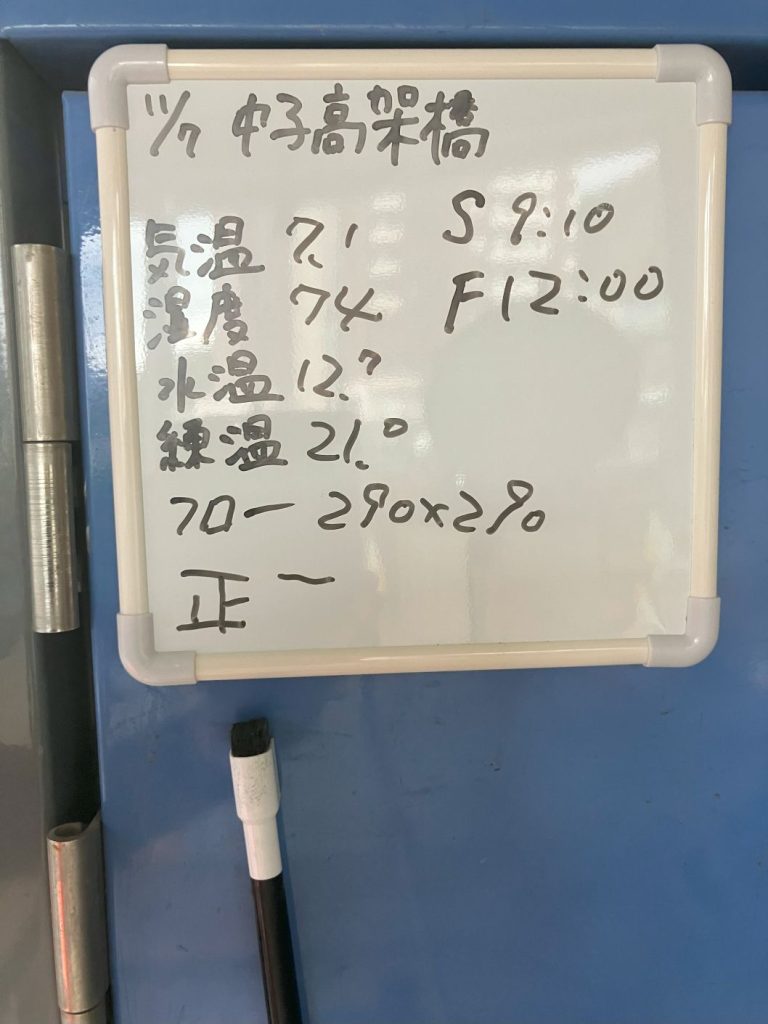 11/7 中子高架橋
気温 7.1 S 9:10
湿度 74 F 12:00
水温 12.7
練温 21.0
フロー 290×290
正一